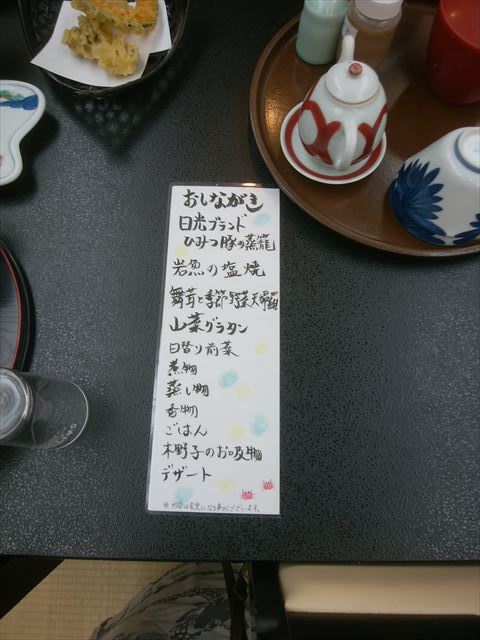 おしながき
日光ブランド
ひみつ豚の蒸籠
岩魚の塩焼
舞茸と季節野菜天婦羅
山菜グラタン
日替り前菜
煮物
蒸し物
香物
ごはん
木野子のお吸物
デザート
※内容は変更になる事がございます。